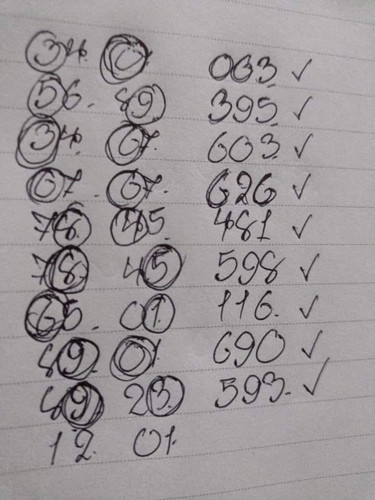 34. 063 ✓
56. 89. 395 ✓
34. 67. 603. ✓
67. 67. 626 ✓
78. 45. 481 ✓
78. 45 598 ✓
65. 01. 116. ✓
89. 01. 690 ✓
89 23. 593. ✓
12. 01.